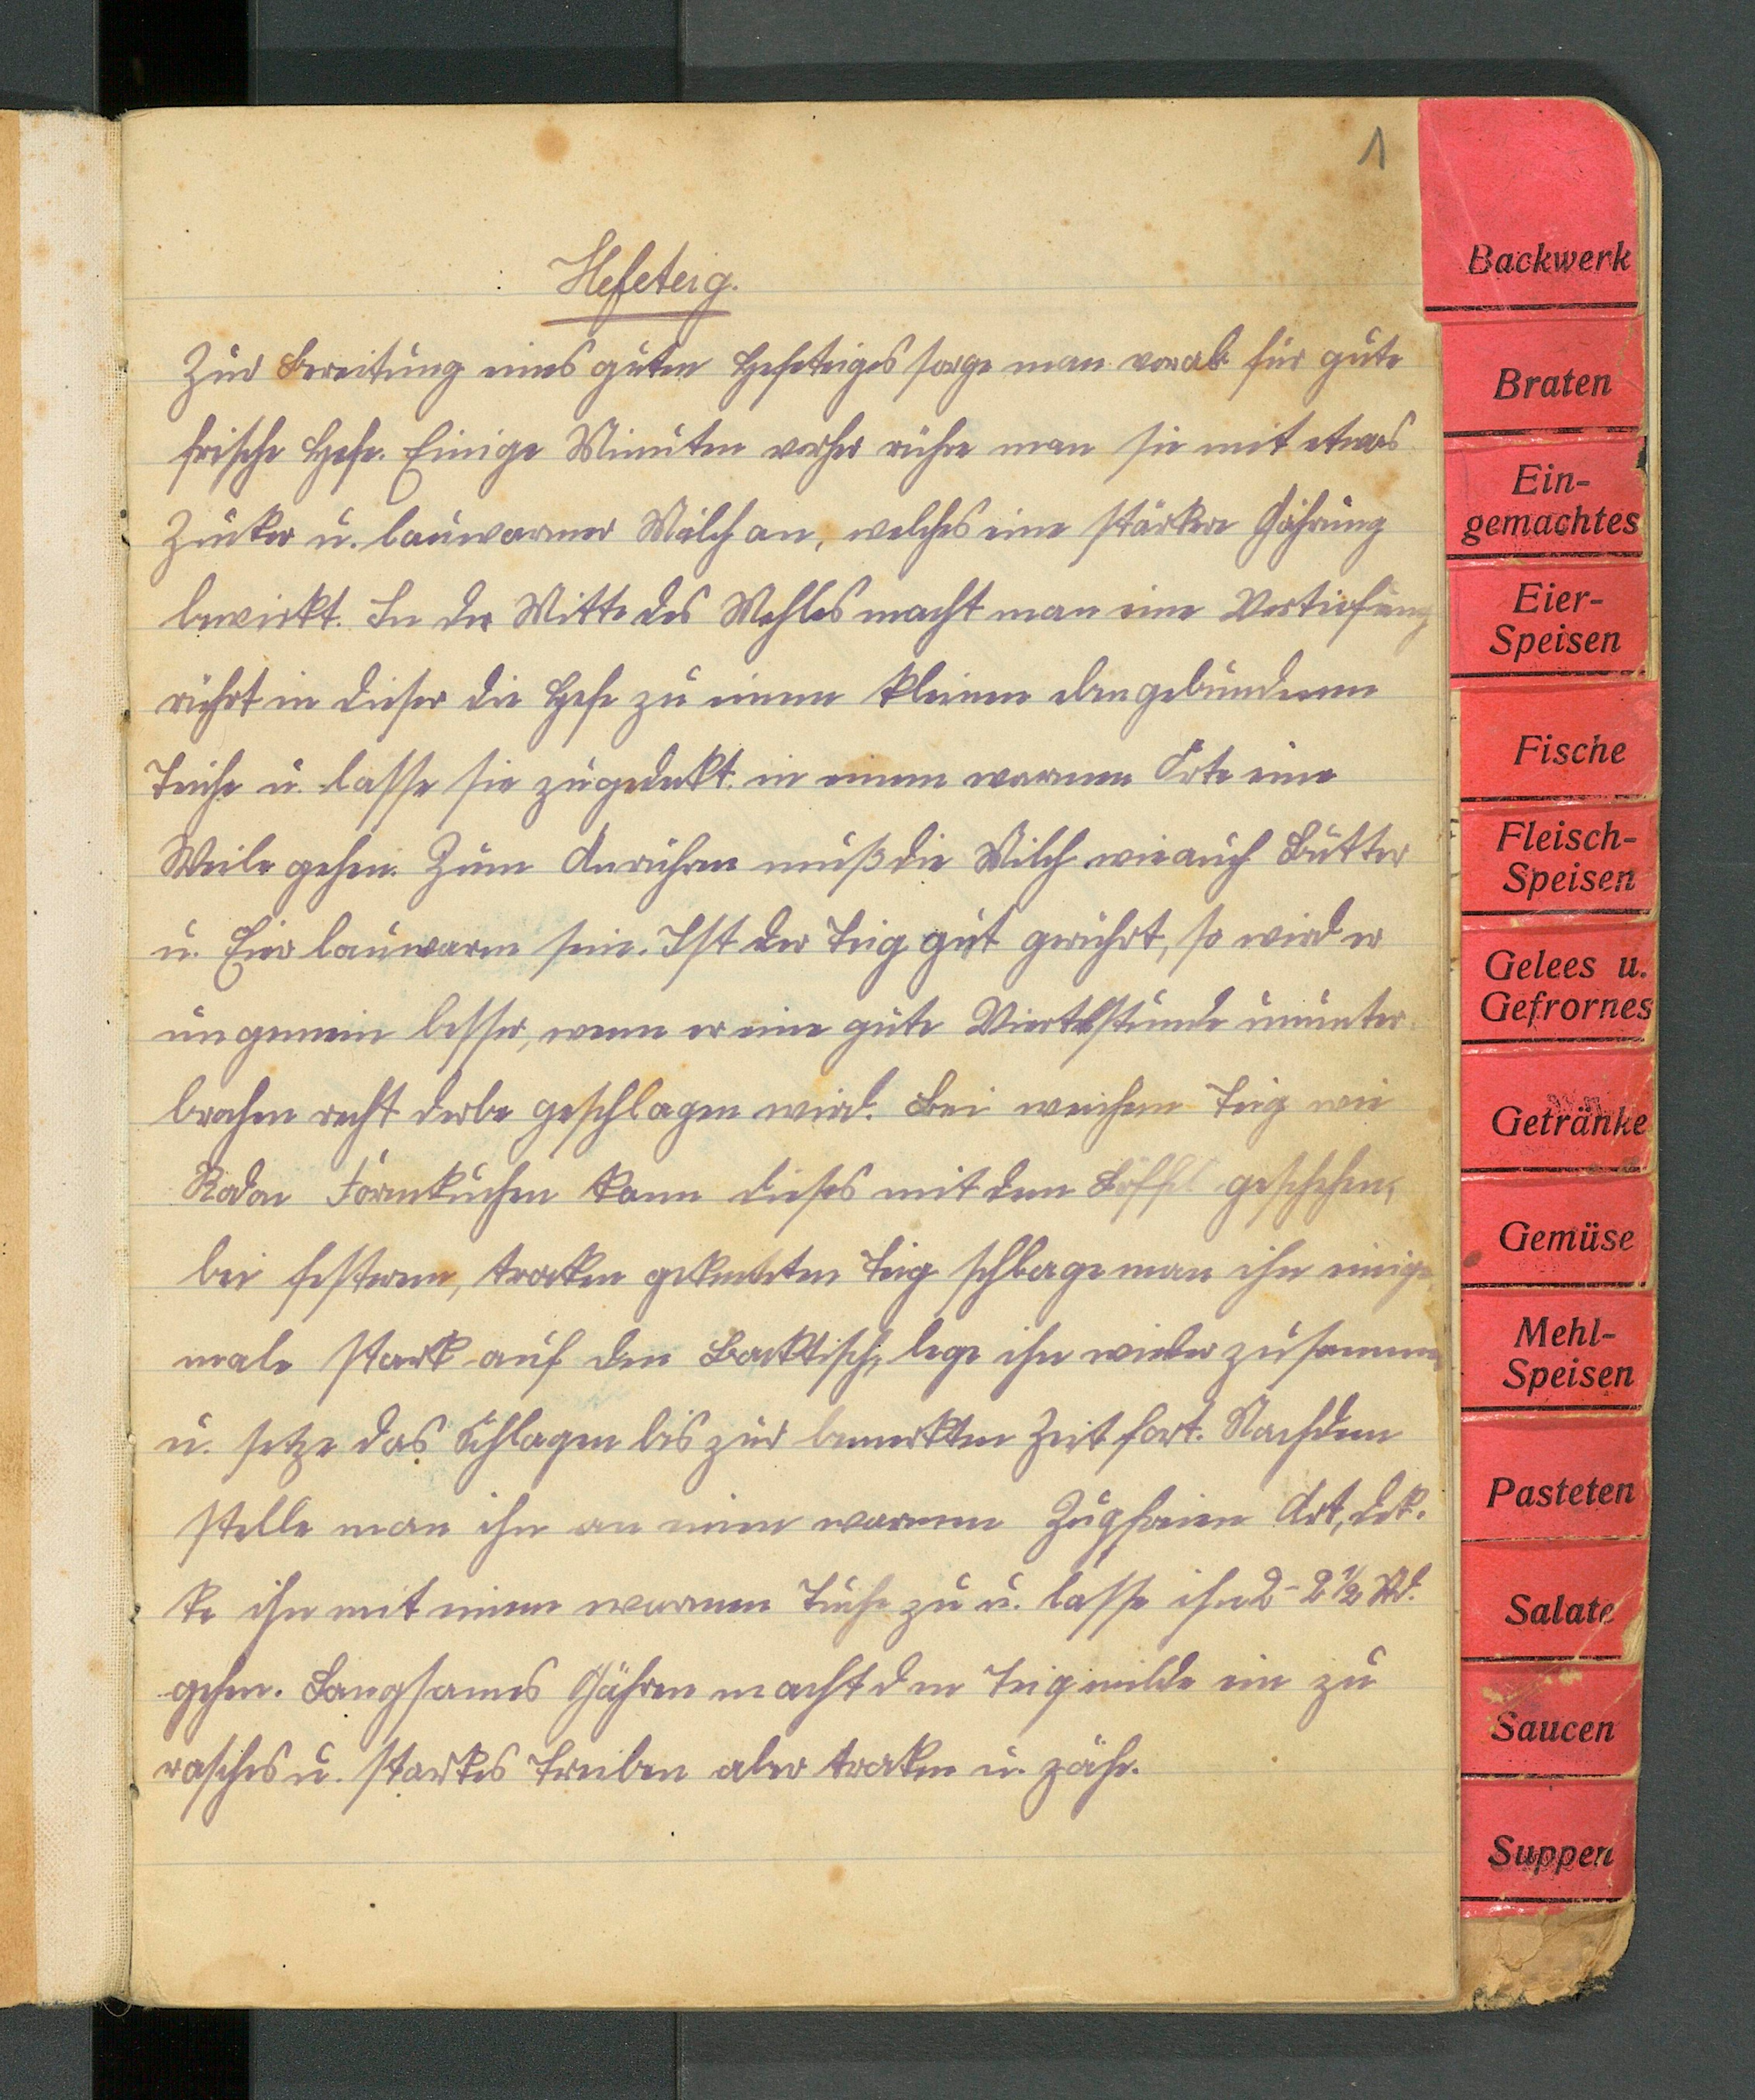 1
Hefeteig.
Zur Bereitung eines guten Hefeteiges sorge man vorab für gute
frische Hefe. Einige Minuten vorher rühre man sie mit etwas
Zucker u. lauwarmer Milch an, welches eine stärkere Gährung
bewirkt. In der Mitte des Mehles macht man eine Vertiefung
rührt in dieser die Hefe zu einem kleinen eben gebundenen
Teiche u. lasse sie zugedekt in einem warmen Orte eine
Weile gehen. Zum Anrühren muß die Milch wie auch Butter
u. Eier lauwarm sein. Ist der Teig gut gerührt, so wird er
ungemein besser, wenn er eine gute Viertelstunde ununter
brochen recht derbe geschlagen wird. Bei weichem Teig wie
Rodon Formkuchen kann dieses mit dem Löffel geschehen,
bei festerem, trocken gekneteten Teig schlage man ihn einige
male stark auf den Backtisch, lege ihn wieder zusammen
u. setze das Schlagen bis zur bemerkten Zeit fort. Nachdem
stelle man ihn an einen warmen Zugfreien Ort, dek.
ke ihn mit einem warmen Tuche zu u. lasse ihn 2-2 1/2 Std.
gehen. Langsames Gähren macht den Teig milde ein zu
rasches u. starkes Treiben aber trocken u. zähe.
Backwerk
Braten
Ein-
gemachtes
Eier-
Speisen
Fische
Fleisch-
Speisen
Gelees u.
Gefrornes
Getränke
Gemüse
Mehl-
Speisen
Pasteten
Salate
Saucen
Suppen